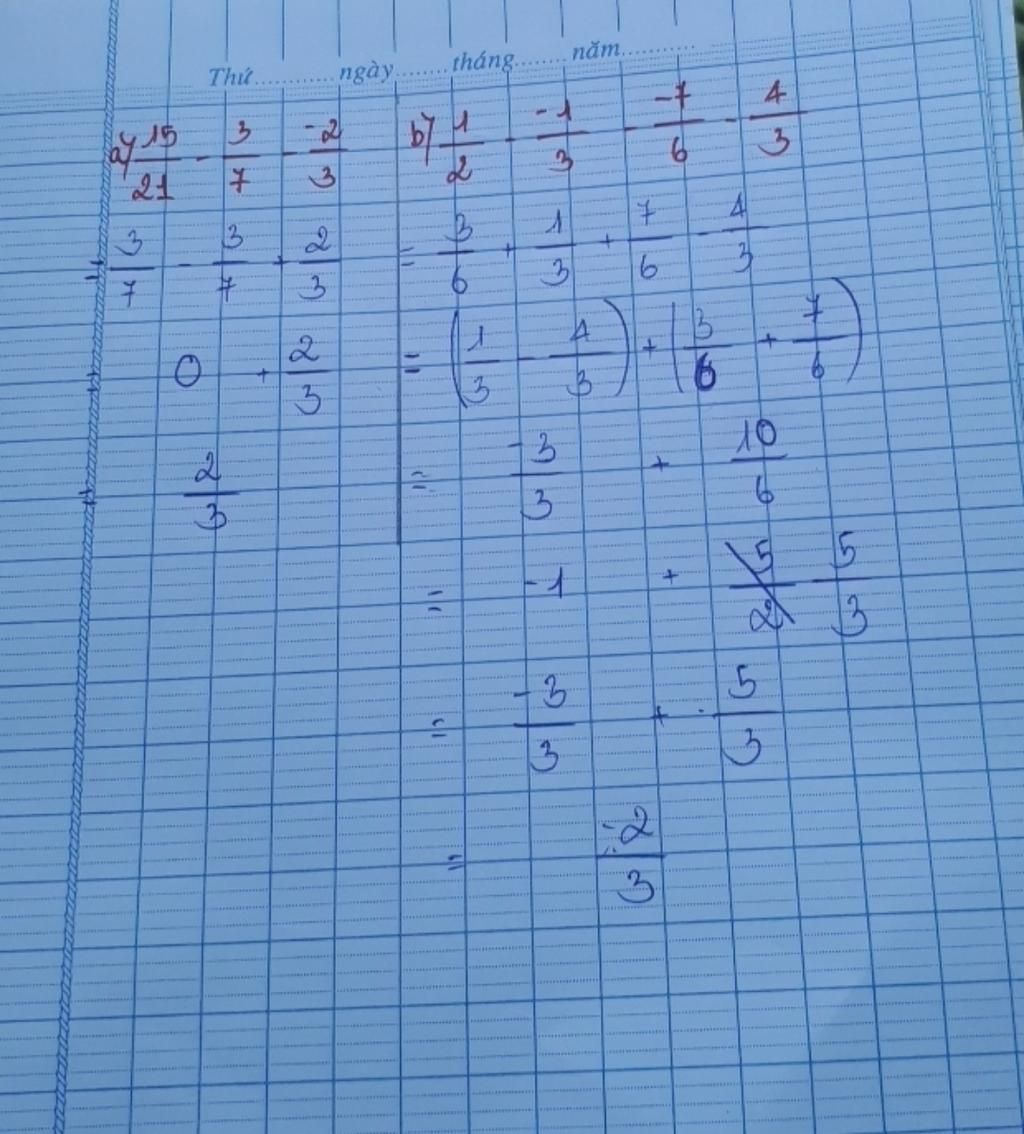 Thứ............ngày.......tháng.......năm..........
a) 15/21 - 3/7 - -2/3
= 3/7 - 3/7 + 2/3
0 + 2/3
= 2/3
b) 1/2 - -1/3 - -7/6 - 4/3
= 3/6 + 1/3 + 7/6 - 4/3
= (1/3 - 4/3) + (3/6 + 7/6)
= -3/3 + 10/6
= -1 + 5/2 5/3
= -3/3 + 5/3
= 2/3